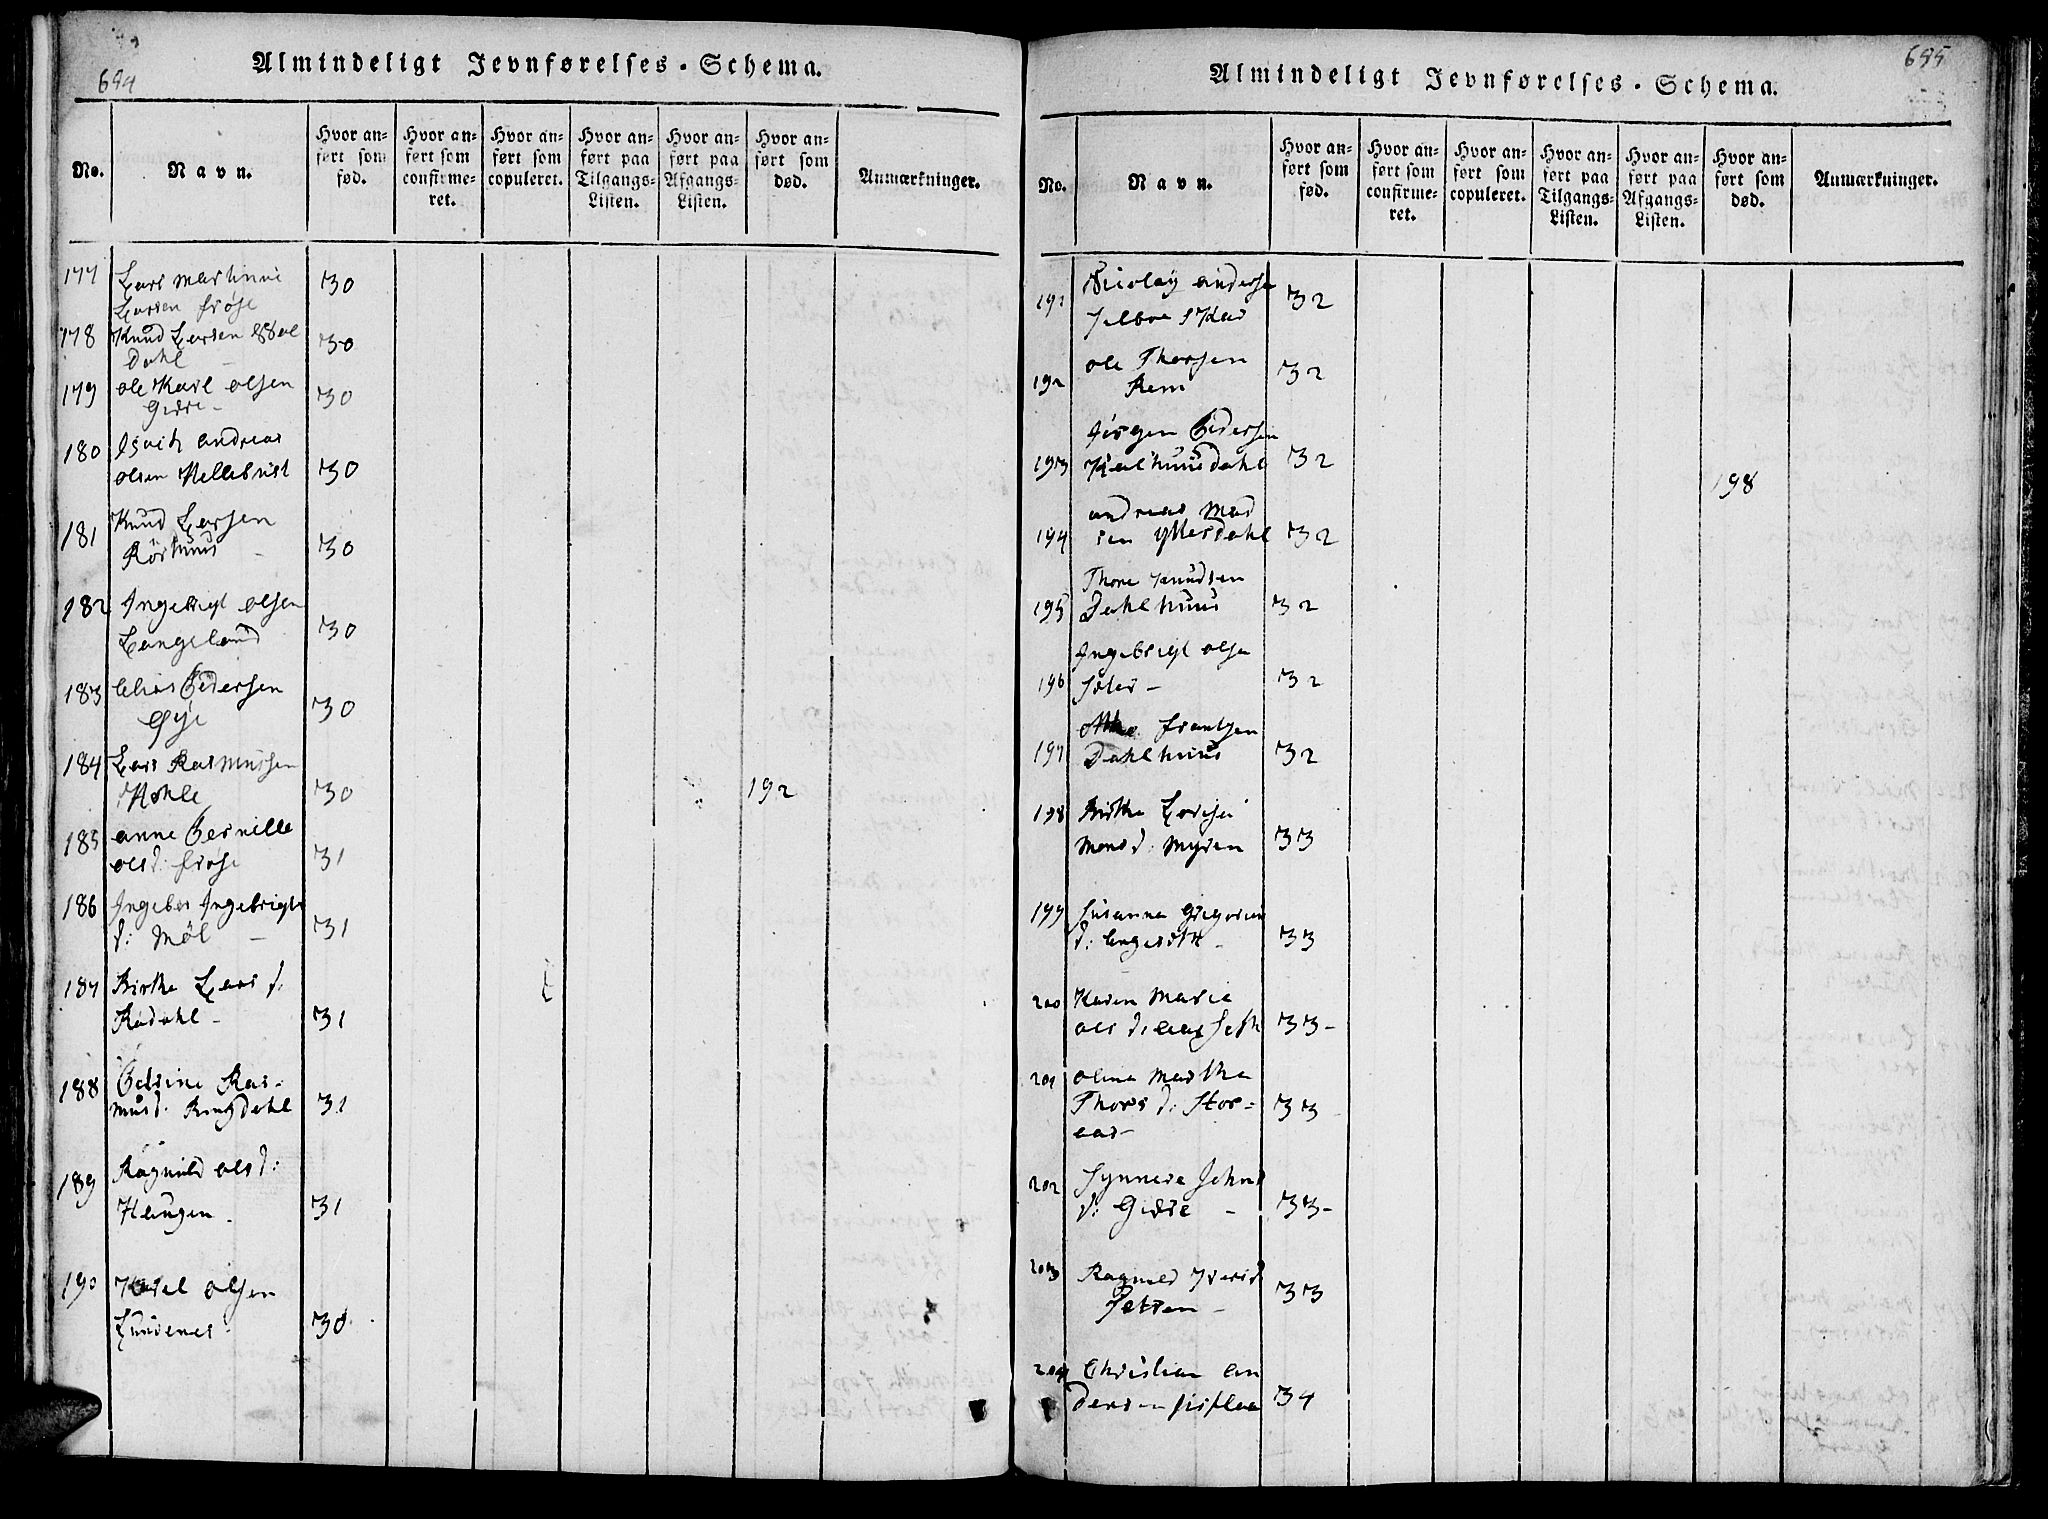 694
Almindeligt Jevnførelses-Schema.
No.
Navn.
Hvor an-
ført som
fød.
Hvor an-
ført som
confirme-
ret.
Hvor an-
ført som
copuleret.
Hvor an-
ført paa
Tilgangs-
Listen.
Hvor an-
ført paa
Afgangs-
Listen.
Hvor an-
ført som
død.
Anmærkninger.
177 Lars Martinus 30
Larsen frøse
178 Knud Larsen
Dahl 30
179 ole Karl olsen
Gidse 30
180 Isach andreas
olsen Hellebust 30
181 Knud Larsen
Rörhuus 30
182 Ingebrigt olsen
Langeland 30
183 Elias Pedersen
Øye 30
184 Lars Rasmussen
30 192
185 anne Pernille
olsd: frøse 31
186 Ingebor Ingebrigts
d: Møl 31
187 Birthe Lars d:
Rødahl 31
188 Petrine Ras-
musd: Ringdahl 31
189 Ragnild olsd:
Haugen 31
190 Karl olsen
Lundenes 30
695
Almindeligt Jevnførelses-Schema.
No.
Navn.
Hvor an-
ført som
fød.
Hvor an-
ført som
confirme-
ret.
Hvor an-
ført som
copuleret.
Hvor an-
ført paa
Tilgangs-
Listen.
Hvor an-
ført paa
Afgangs-
Listen.
Hvor an-
ført som
død.
Anmærkninger.
191 Nicolay anderse 32
192 ole Thorsen
Rem 32
193 Jörgen Pedersen
Kalhuusdahl 32 198
194 andreas Mad
sen Ytterdahl 32
195 Thore Knudsen
Dahlhuus 32
196 Ingebrigt olse
32
197 frantzen
Dahlhuus 32
198 Birthe Lovise
Monsd: Myren 33
199 Susanna Gregorius
d: 33
200 Karen Maria
ols d: 33-
201 olina Martha
Thors d: Stor-
aas- 33
202 Synneve Johns
d: Gidse - 33-
203 Ragnild Ivers d
33
204 Christian an
dersen 34